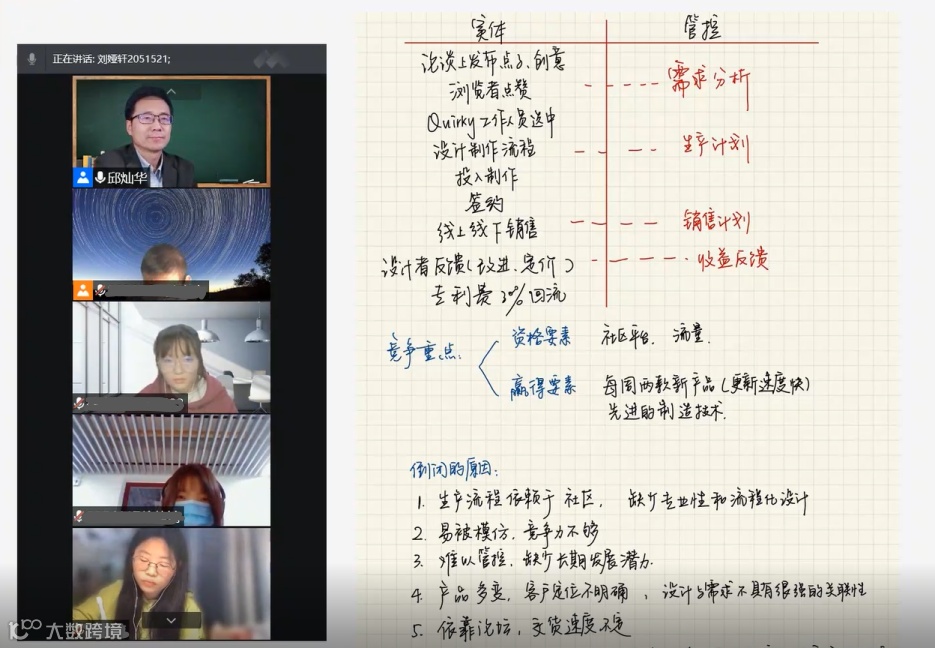 正在讲话: 刘娅轩2051521;
邱灿华
实体
管控
论谈上发布点子、创意
浏览者点赞
需求分析
Quirky工作人员选中
设计制作流程
生产计划
投入制作
签约
线上线下销售
销售计划
设计者反馈(改进、定价)
收益反馈
专利费 回流
竞争重点:
资格要素 社区平台、流量.
赢得要素 每周两款新产品(更新速度快)
先进的制造技术.
倒闭的原因:
1. 生产流程依赖于社区, 缺少专业性和流程化设计
2. 易被模仿, 竞争力不够
3. 难以管控, 缺少长期发展潜力.
4. 产品多变, 客户定位不明确, 设计与需求不具有很强的关联性
5. 依靠论坛, 交货速度不定
大数跨境